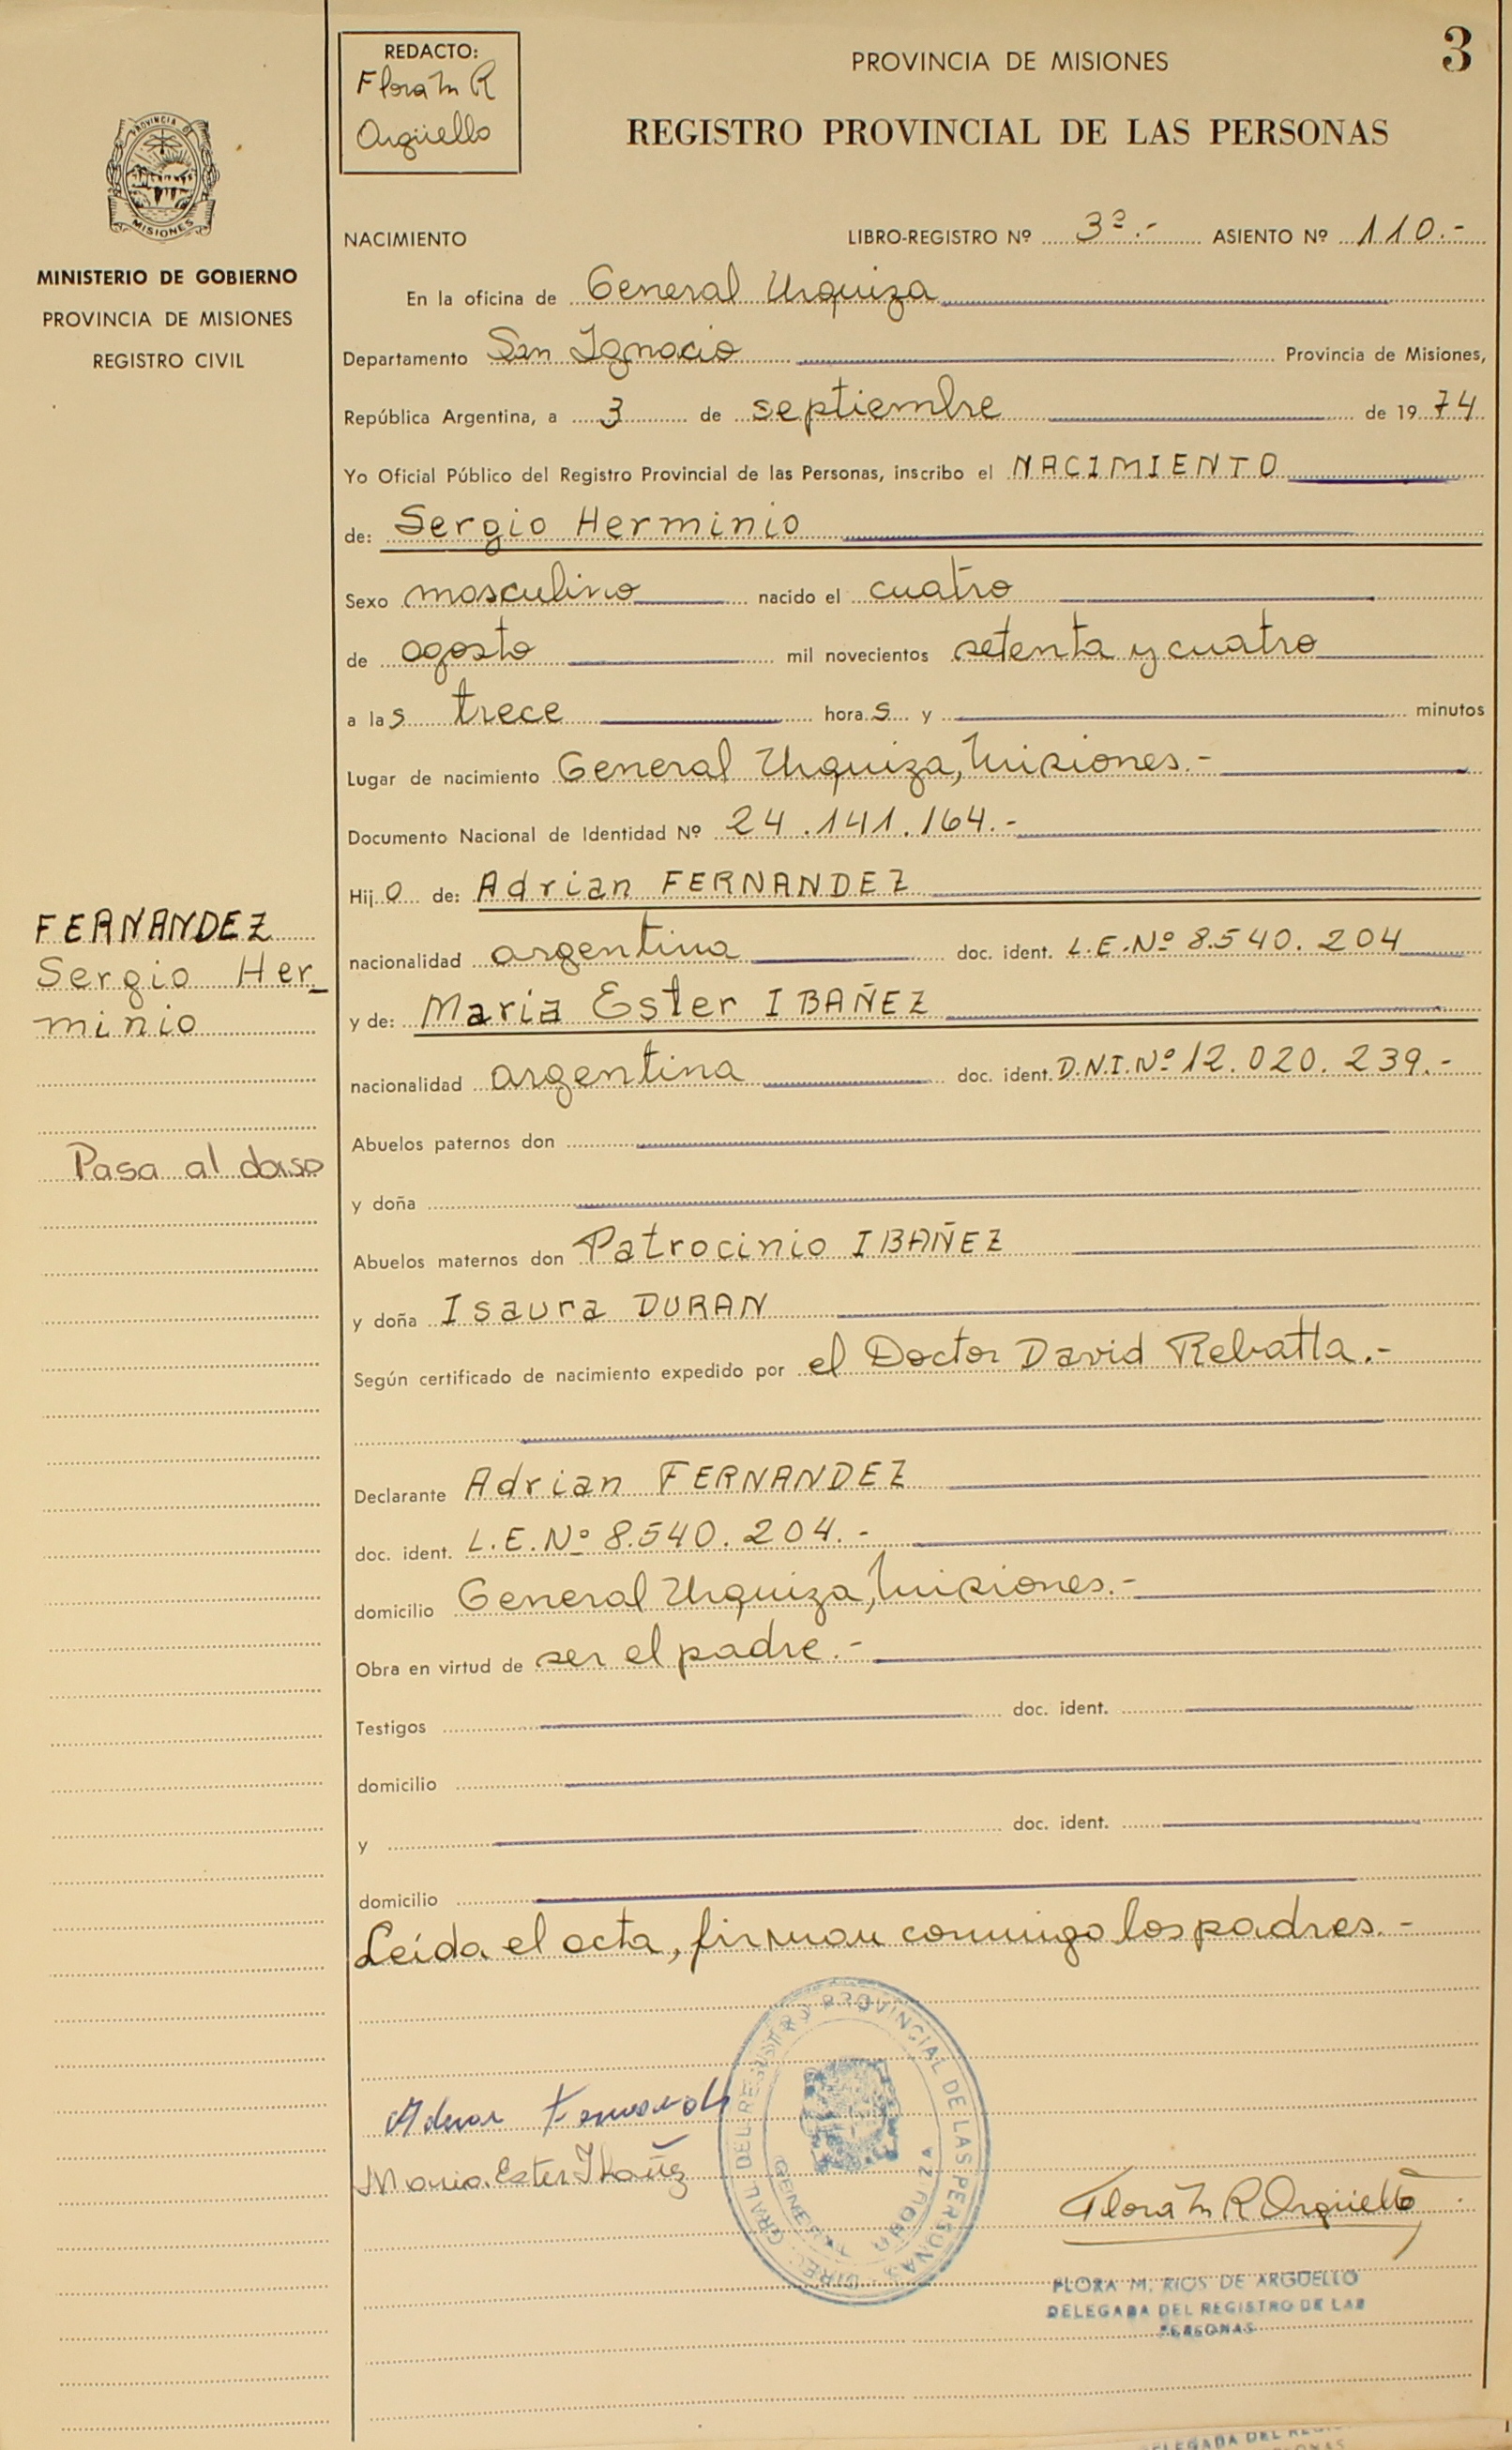 3
REDACTO:
Flora M R
Argüello
PROVINCIA DE MISIONES
REGISTRO PROVINCIAL DE LAS PERSONAS
PROVINCIA DE
MISIONES
MINISTERIO DE GOBIERNO
PROVINCIA DE MISIONES
REGISTRO CIVIL
NACIMIENTO LIBRO-REGISTRO Nº 3º.- ASIENTO Nº 110.-
En la oficina de General Urquiza
Departamento San Ignacio Provincia de Misiones,
República Argentina, a 3 de septiembre de 1974
Yo Oficial Público del Registro Provincial de las Personas, inscribo el NACIMIENTO
de: Sergio Herminio
Sexo masculino nacido el cuatro
de agosto mil novecientos setenta y cuatro
a las trece horas y minutos
Lugar de nacimiento General Urquiza, Misiones.-
Documento Nacional de Identidad Nº 24.141.164.-
Hijo de: Adrian FERNANDEZ
nacionalidad argentina doc. ident. L.E.Nº 8.540.204
y de: Maria Ester IBAÑEZ
nacionalidad argentina doc. ident. D.N.I.Nº 12.020.239.-
Abuelos paternos don
y doña
Abuelos maternos don Patrocinio IBAÑEZ
y doña Isaura DURAN
Según certificado de nacimiento expedido por el Doctor David Rebatta.-
Declarante Adrian FERNANDEZ
doc. ident. L.E.Nº 8.540.204.-
domicilio General Urquiza, Misiones.-
Obra en virtud de ser el padre.-
Testigos doc. ident.
domicilio
y doc. ident.
domicilio
Leída el acta, firman conmigo los padres.-
FERNANDEZ
Sergio Her-
minio
Pasa al dorso
Maria Ester Ibañez
DIREC. GRAL. DEL REGISTRO PROVINCIAL DE LAS PERSONAS
GENERAL URQUIZA
Flora M R Argüello
FLORA M. RIOS DE ARGUELLO
DELEGADA DEL REGISTRO DE LAS
PERSONAS